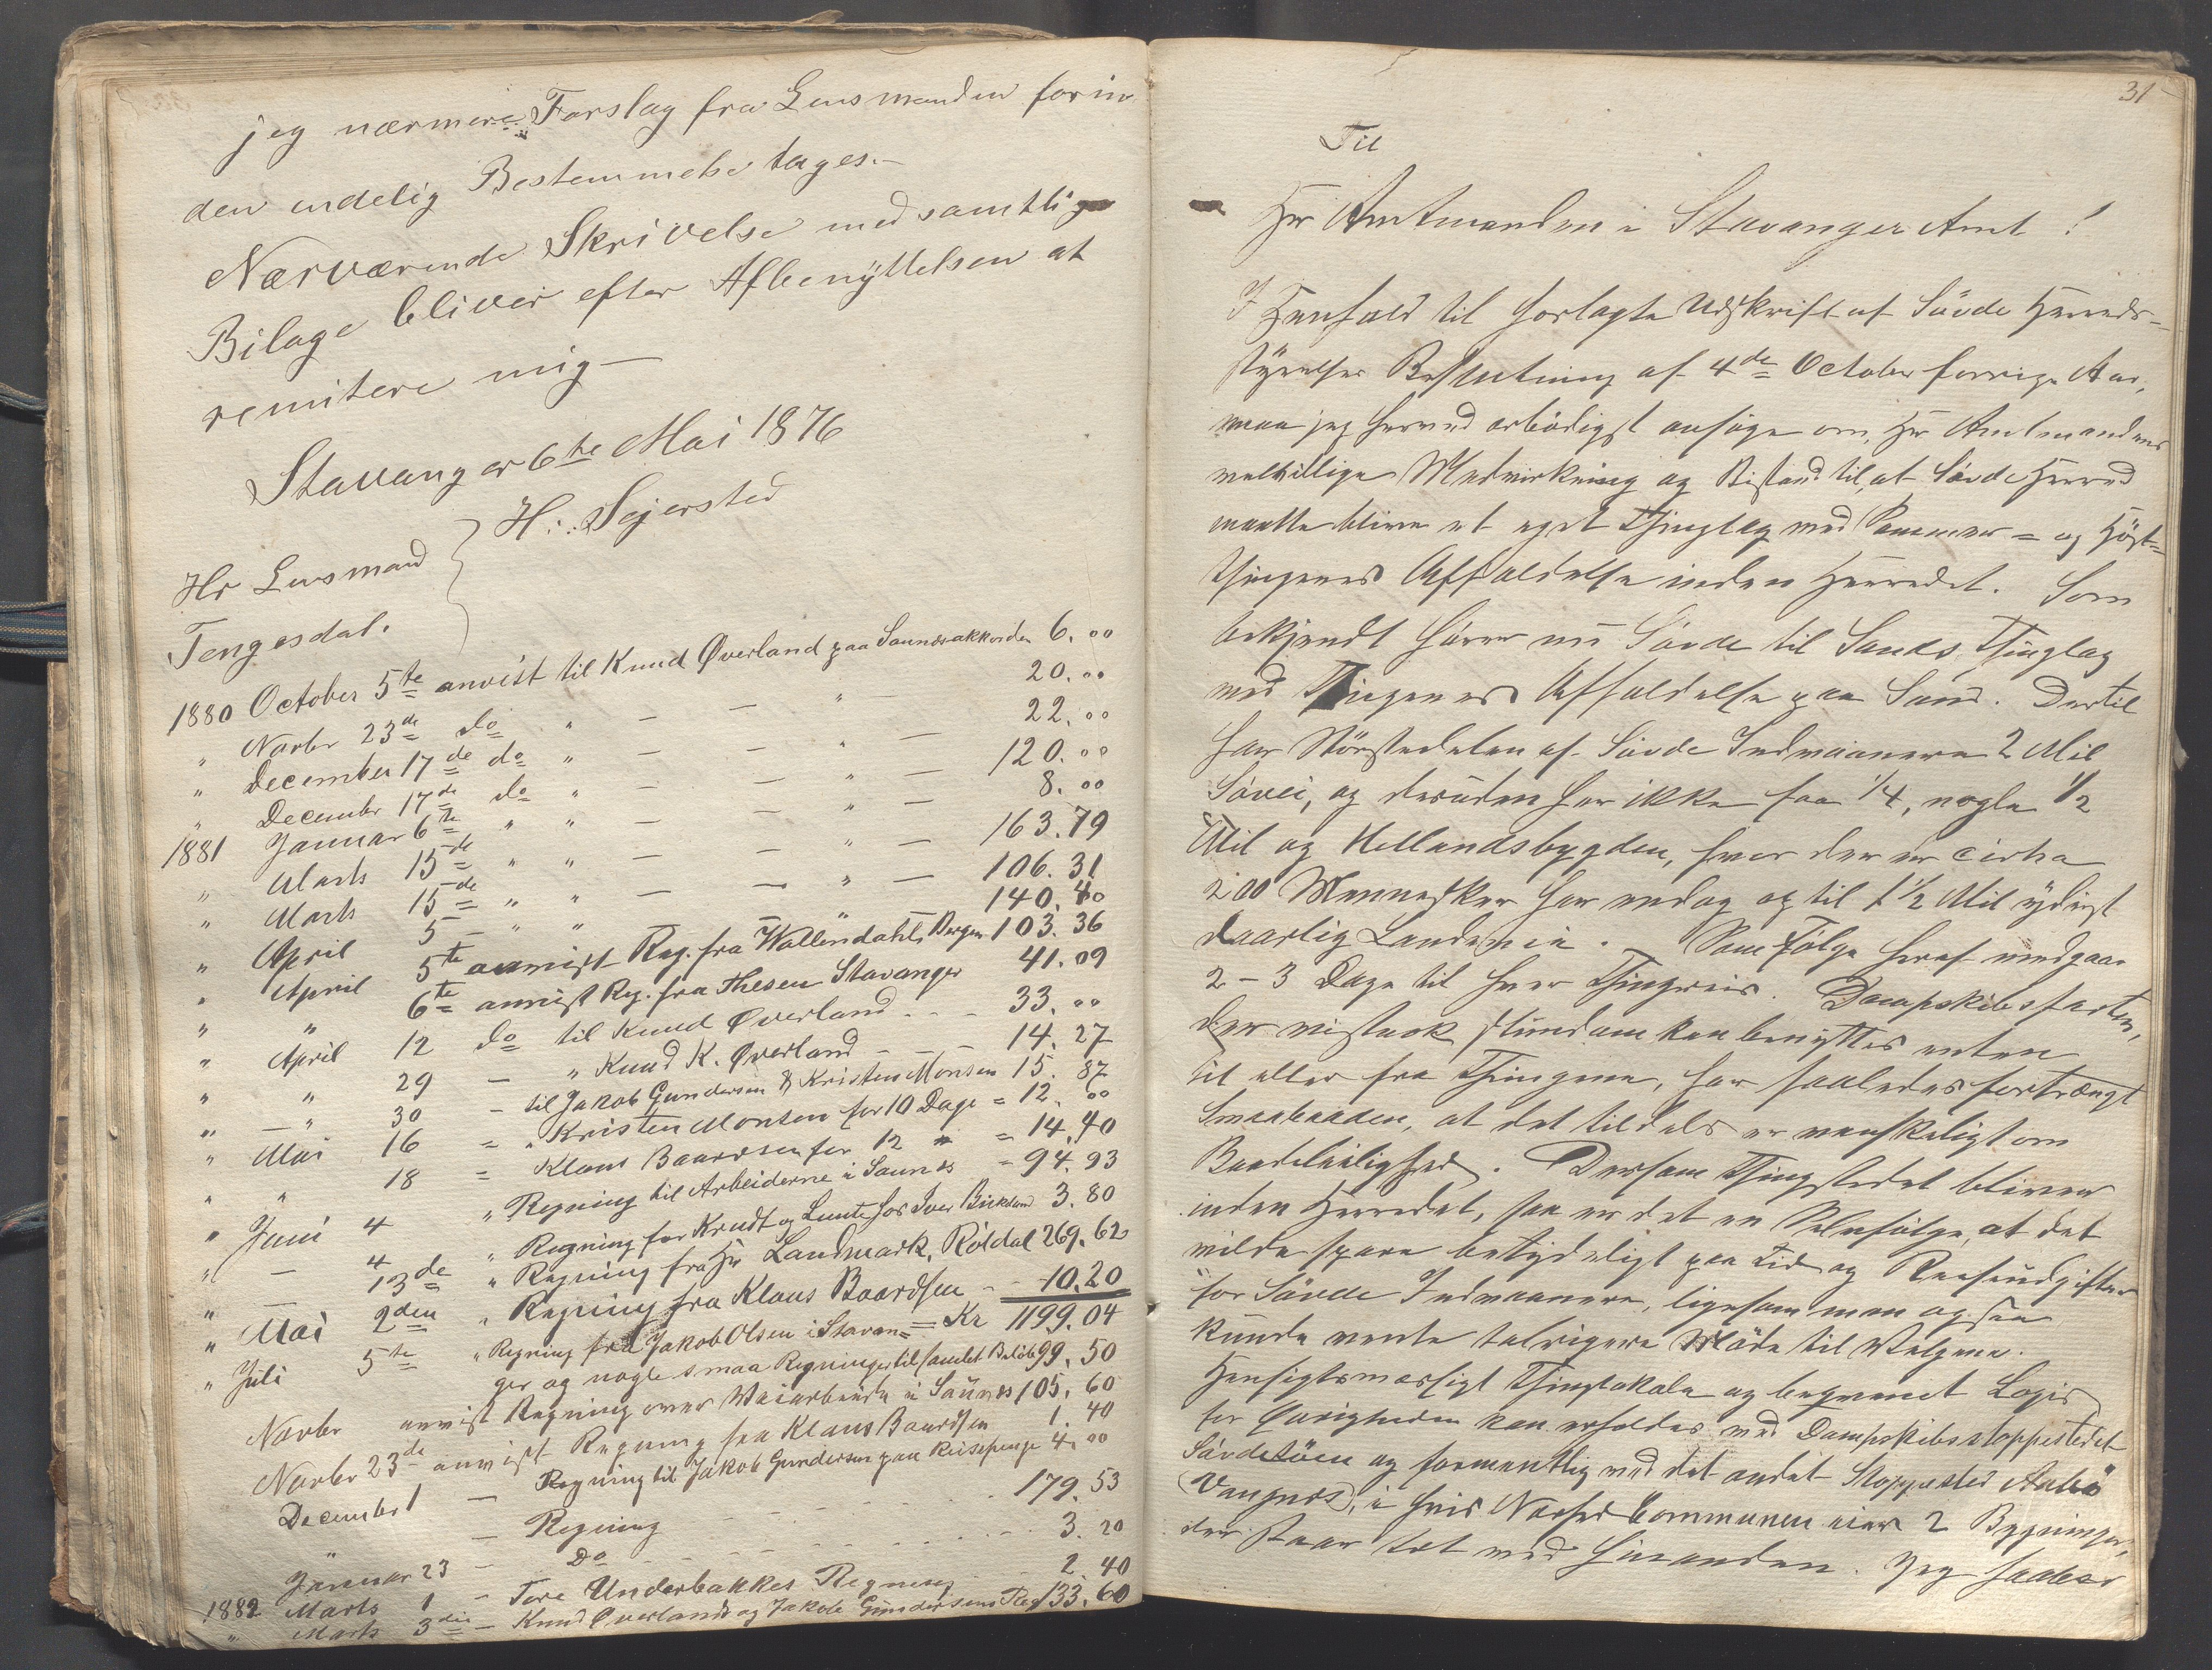 jeg nærmere Forslag fra Lensmanden forin
den endelig Bestemmelse tages.–
Nærværende Skrivelse med samtlige
Bilage bliver efter Afbenyttelsen at
remitere mig –
Stavanger 6te Mai 1876
H: Sejersted
Hr Lensmand
Tengesdal.
1880 October 5te anvist til Knud Øverland paa Saundsakkorden 6.00
" Novbr 23de do " — — " — 20.00
" December 17de do " — — " — 22.00
" December 17de do " — — " — 120.00
1881 Januar 6te " " — — " — 8.00
" Marts 15de " " — — " — 163.79
" Marts 15de " " — — " — 106.31
" April 5 – " " — — " — 140.40
" April 5te anvist Reg. fra Wallendahl, Bergen 103.36
" " 6te anvist Reg. fra Thesen Stavanger 41.09
" April 12 do til Knud Øverland - - - 33.00
" " 29 — " Knud K. Øverland - - - 14.27
" — " 30 - til Jakob Gundersen & Kristen Monsen 15.87
" Mai 16 = " Kristen Monsen for 10 Dage = 12.00
" " 18 = Klaus Baardsen for 12 " = 14.40
" Juni 4 " Regning til Arbeiderne i Saunds - 94.93
" — 4 " Regning for Krudt og Lunte hos Iver 3.80
" — 13de " Regning fra Hr Landmark, Röldal 269.62
" Mai 2den " Regning fra Klaus Baardsen - - 10.20
" Juli 5te " Regning fra Jakob Olsen i Stavan= = Kr 1199.04
ger og nogle smaa Regninger til samlet Beløb 99.50
Novbr anvist Regning over Veiarbeide i Saunds 105.60
Novbr 23de anvist Regning fra Klaus Baardsen 1.40
December 1 — Regning til Jakob Gundersen paa Reisepenge 4.00
" — Regning - - - - - - 179.53
Januar 23 - Do - - - - - - - 3.20
1882 Marts 1 - Tore Underbakkes Regning - - 2.40
" Marts 3die — Knud Øverlands og Jakob Gundersens Reg 133.60
31
Til
Hr Amtmanden i Stavanger Amt !
I Henhold til forlagte Udskrift af Sövde Herreds=
styrelses Beslutning af 4de October forrige Aar,
maa jeg herved ærbödigst ansöge om, Hr Amtmandens
velvillige Medvirkning og Bistand til, at Sövde Herred
maatte blive et eget Thinglag med Sommer= og Höst=
thingenes Afholdelse inden Herredet. Som
bekjendt hörer nu Sövde til Sands Thinglag
med Thingenes Afholdelse paa Sand. Dertil
har Störstedelen af Sövde Indvaanere 2 Mil
Sövei, og desuden har ikke faa 1/4, nogle 1/2
Mil og Hellandsbygden, hvor der er cirka
200 Mennesker har endog op til 1 1/2 Mil yderst
daarlig Landevei. Som Fölge heraf medgaar
2 – 3 Dage til hver Thingreis. Dampskibsfarten,
der vistnok stundom kan benyttes enten
til eller fra Thingene, har saaledes fortrængt
Smaabaaden, at det tildels er vanskeligt om
Baadleilighed. Dersom Thingstedet bliver
inden Herredet, saa er det en Selvfölge, at det
vilde spare betydeligt paa Tid og Reiseudgifter
for Sövde Indvaanere, ligesom man ogsaa
kunde vente talrigere Möde til Valgene.
Hensigtsmæssigt Thinglokale og beqvemt Logis
for Øvrigheden kan erholdes ved Dampskibsstoppestedet
Sövdetöen og formentlig ved det andet Stoppested Aabö
(Vangnes), i hvis Nærhed Communen eier 2 Bygninger,
der staar tet ved hinanden. Jeg haaber